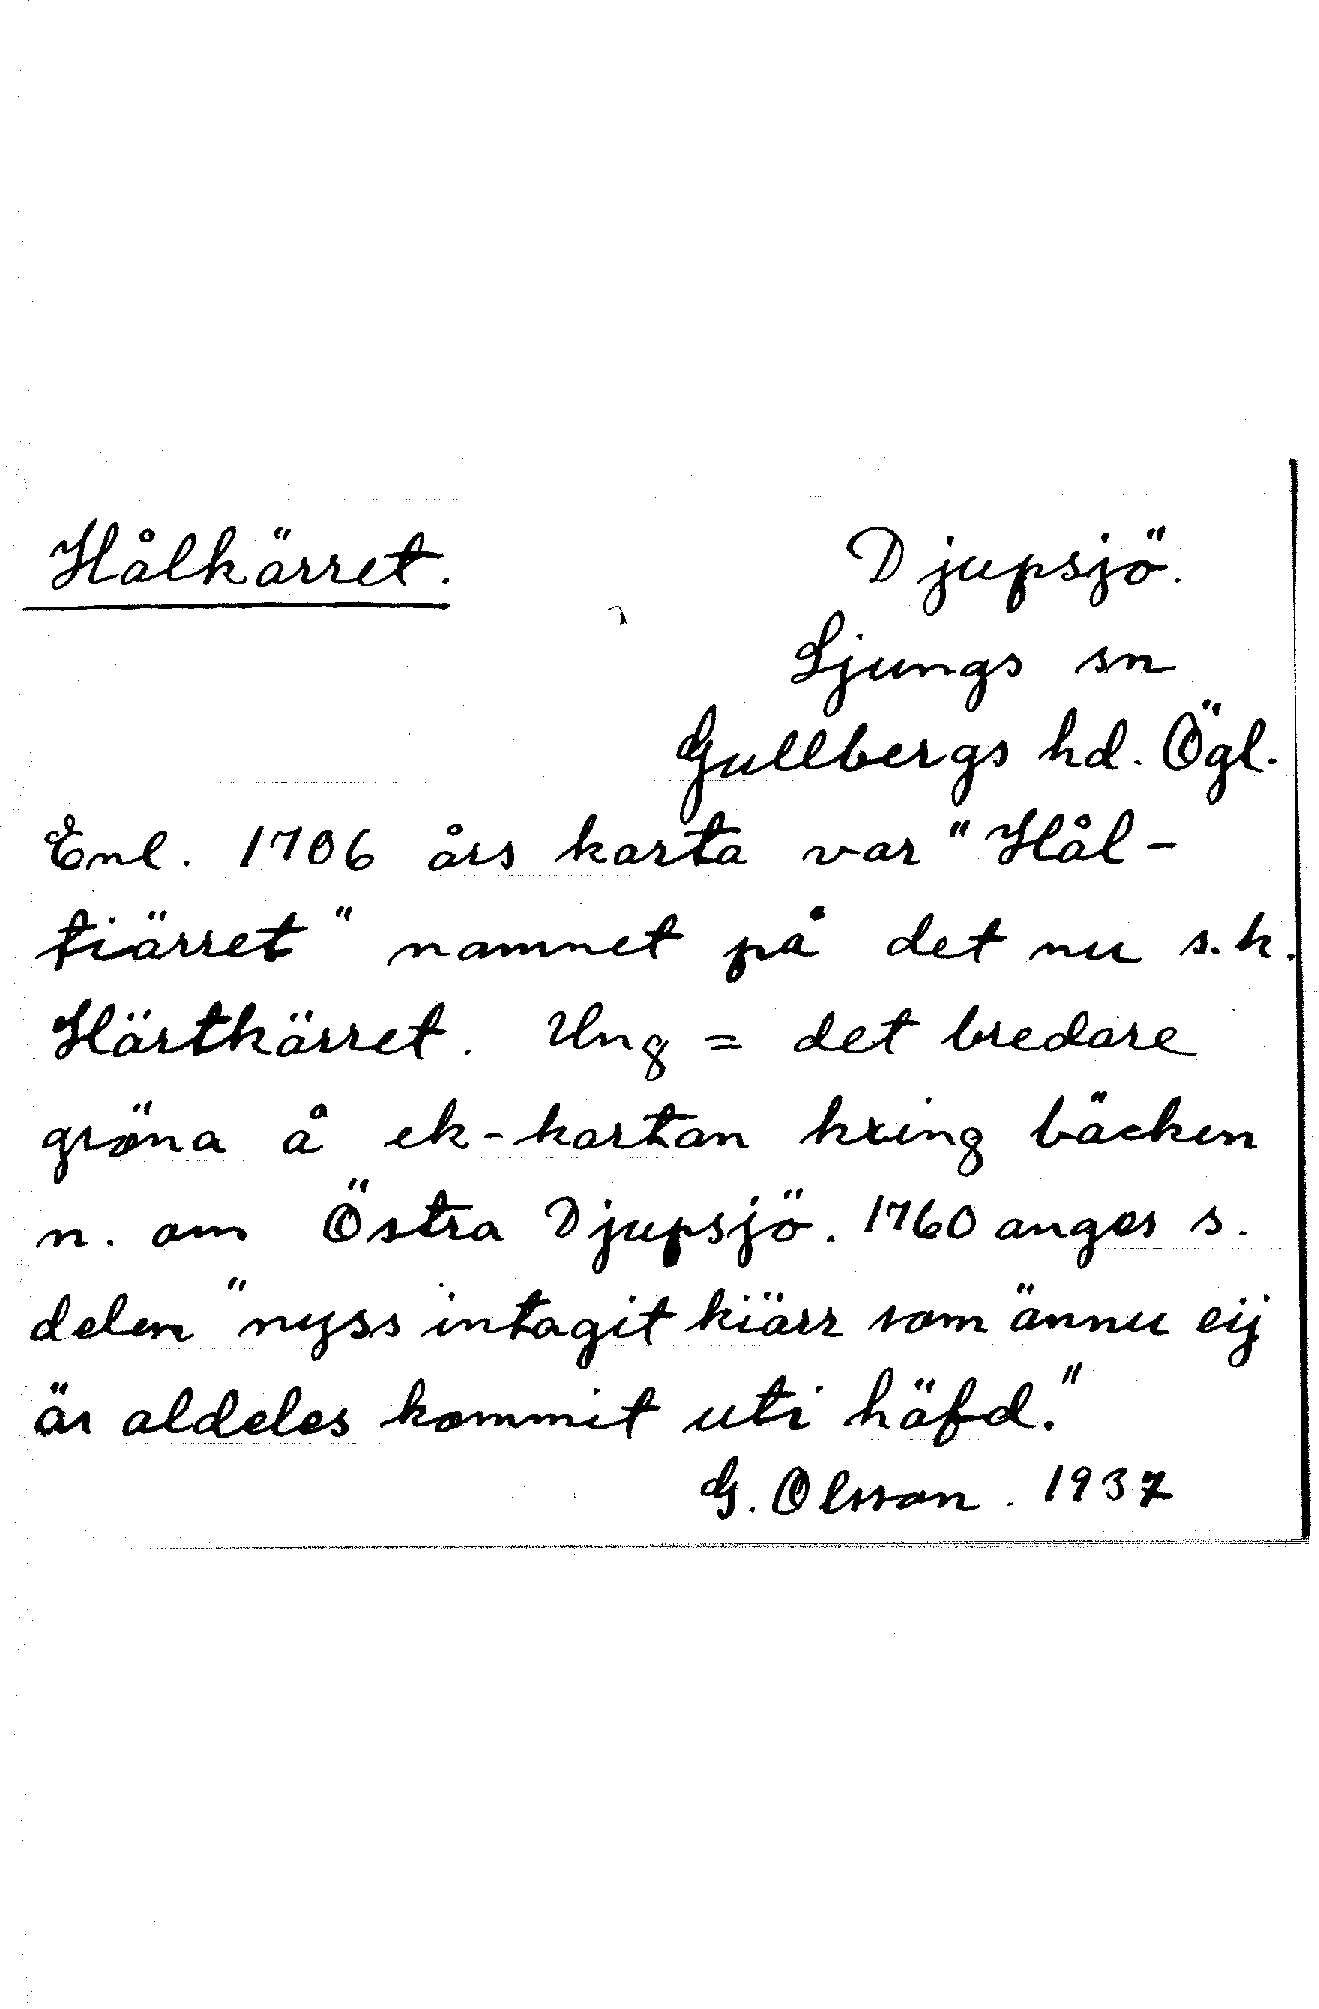 Hålkärret.
Djupsjö.
Ljungs sn
Gullbergs hd. Ögl.
Enl. 1706 års karta var "Hål-
tiärret" namnet på det nu s.k.
Härtkärret. Ung = det bredare
gröna å ek-kartan kring bäcken
n. om Östra Djupsjö. 1760 anges s.
delen "nyss intagit kiärr som ännu eij
är aldeles kommit uti häfd."
G. Olsson. 1937